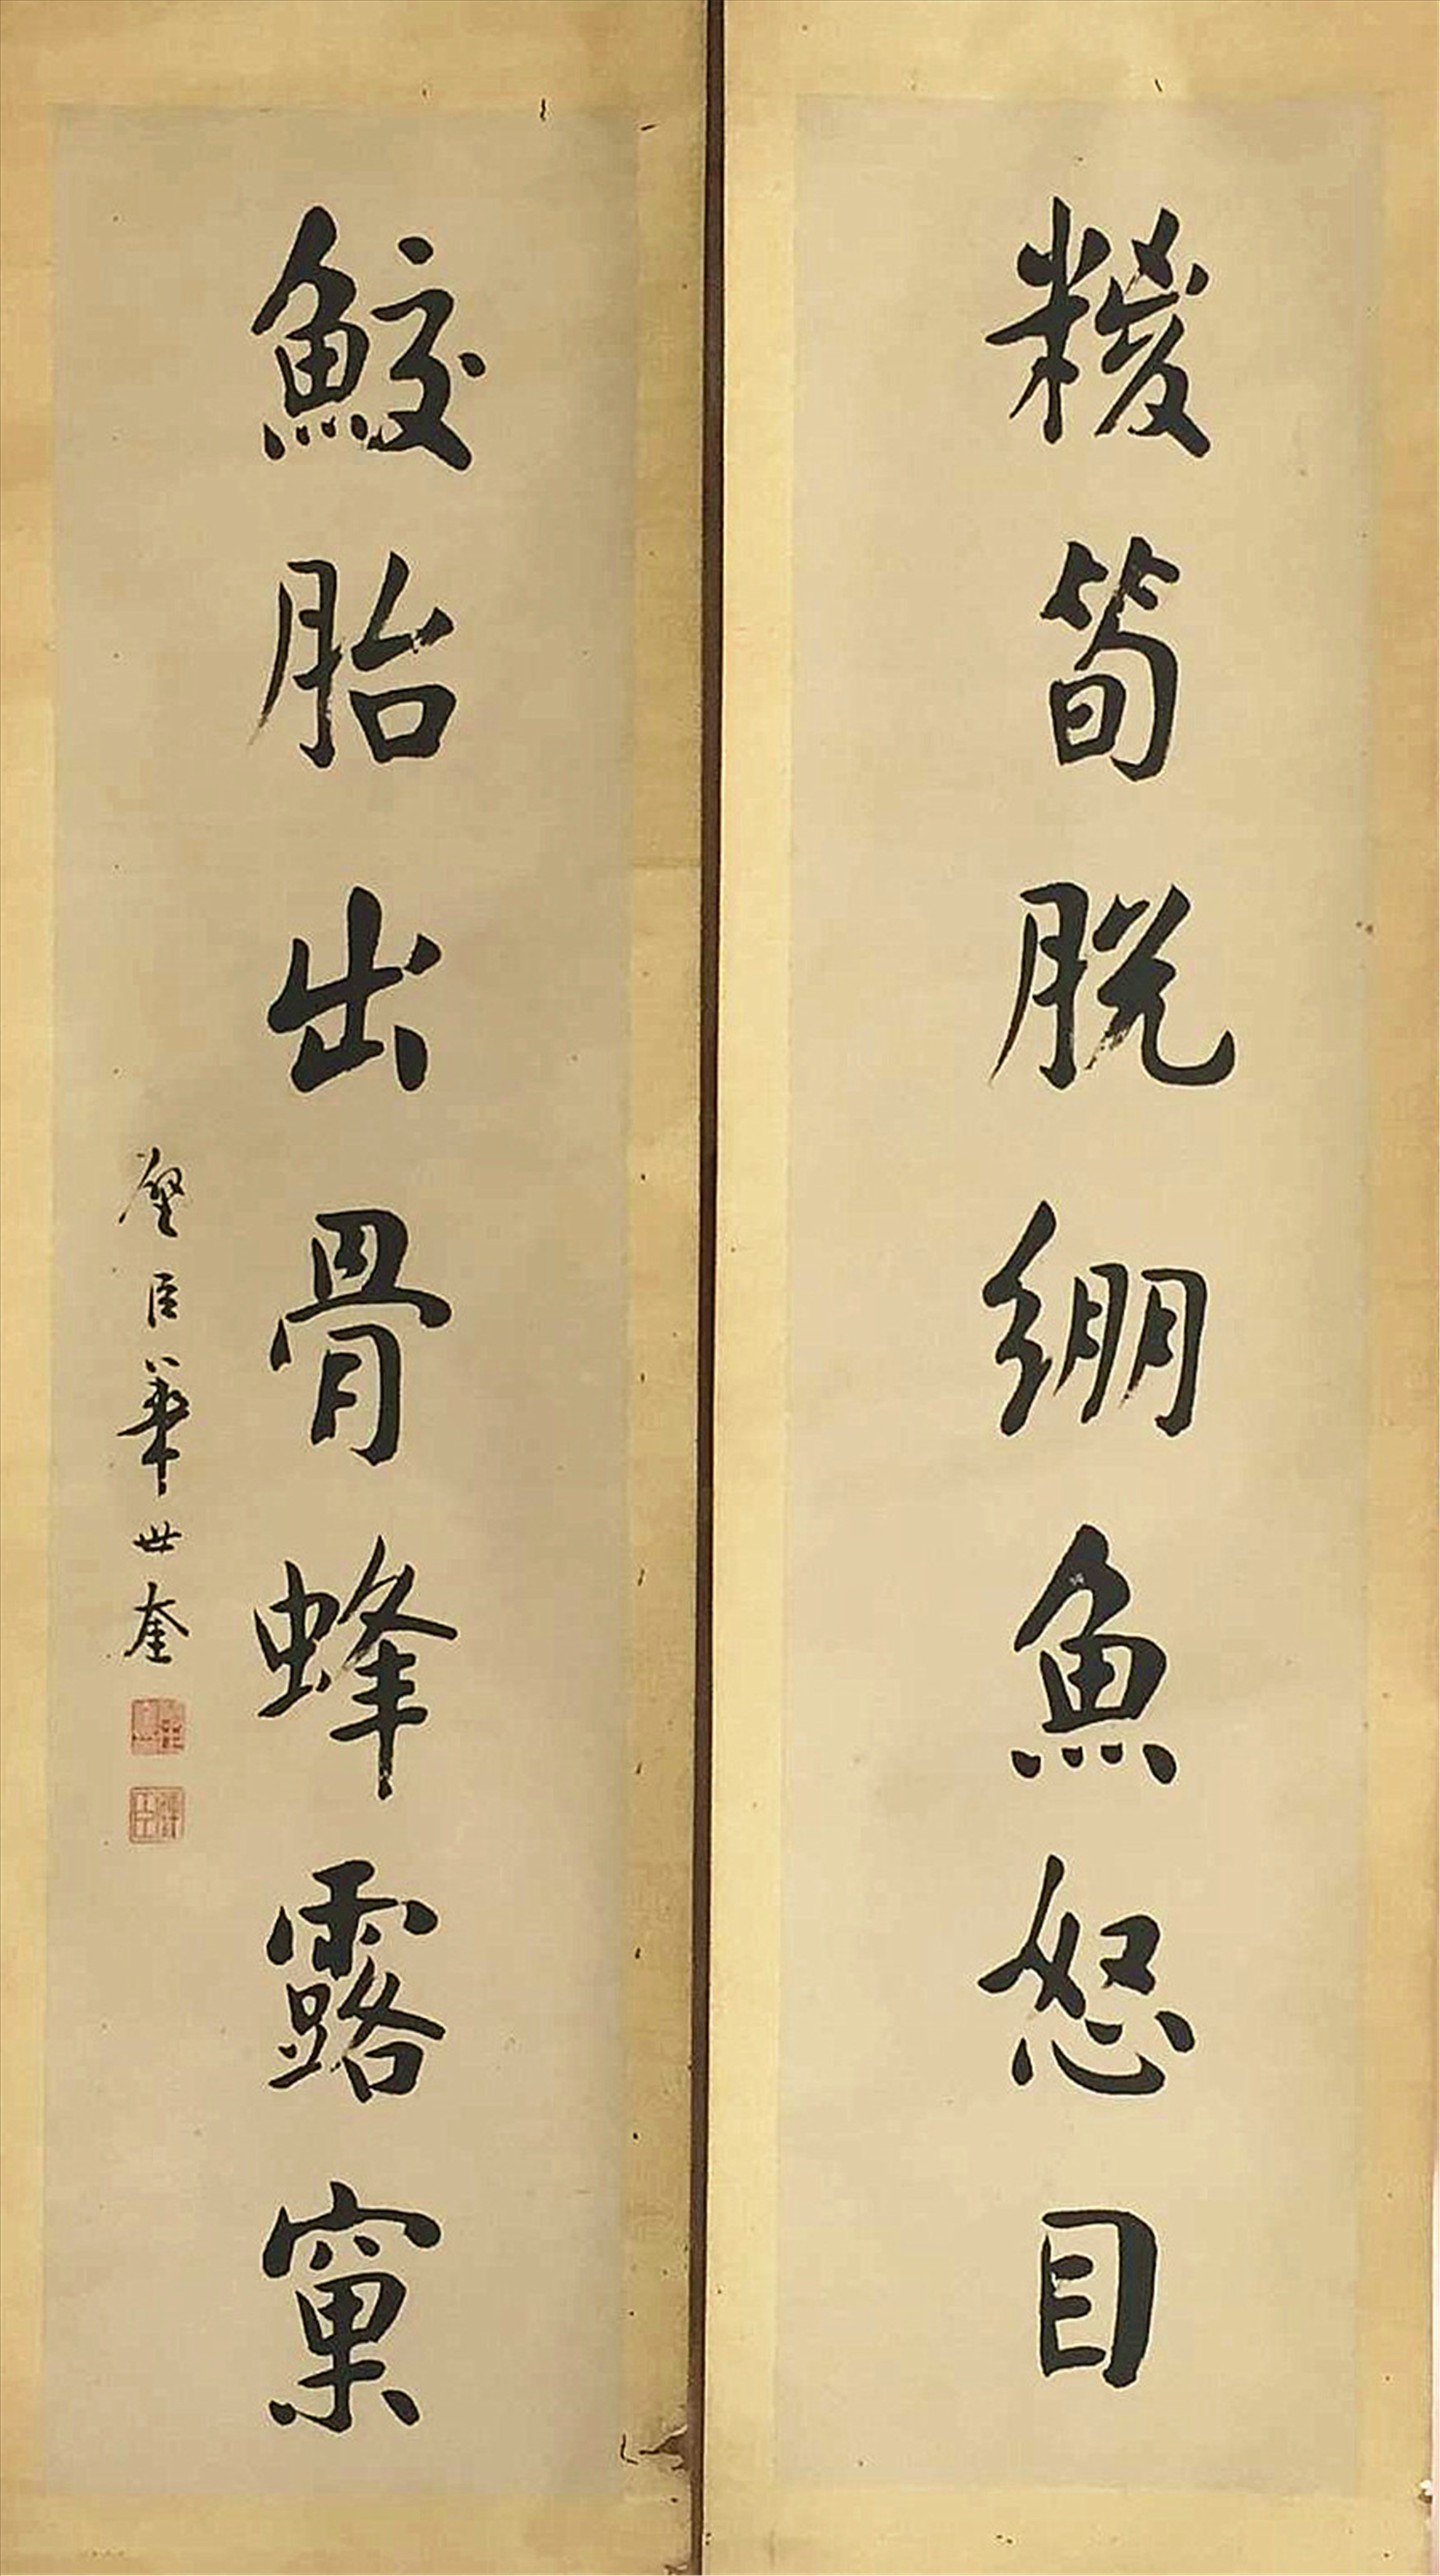 糉筍脫綳魚怒目
鮫胎出骨蜂露窠
璧臣華世奎